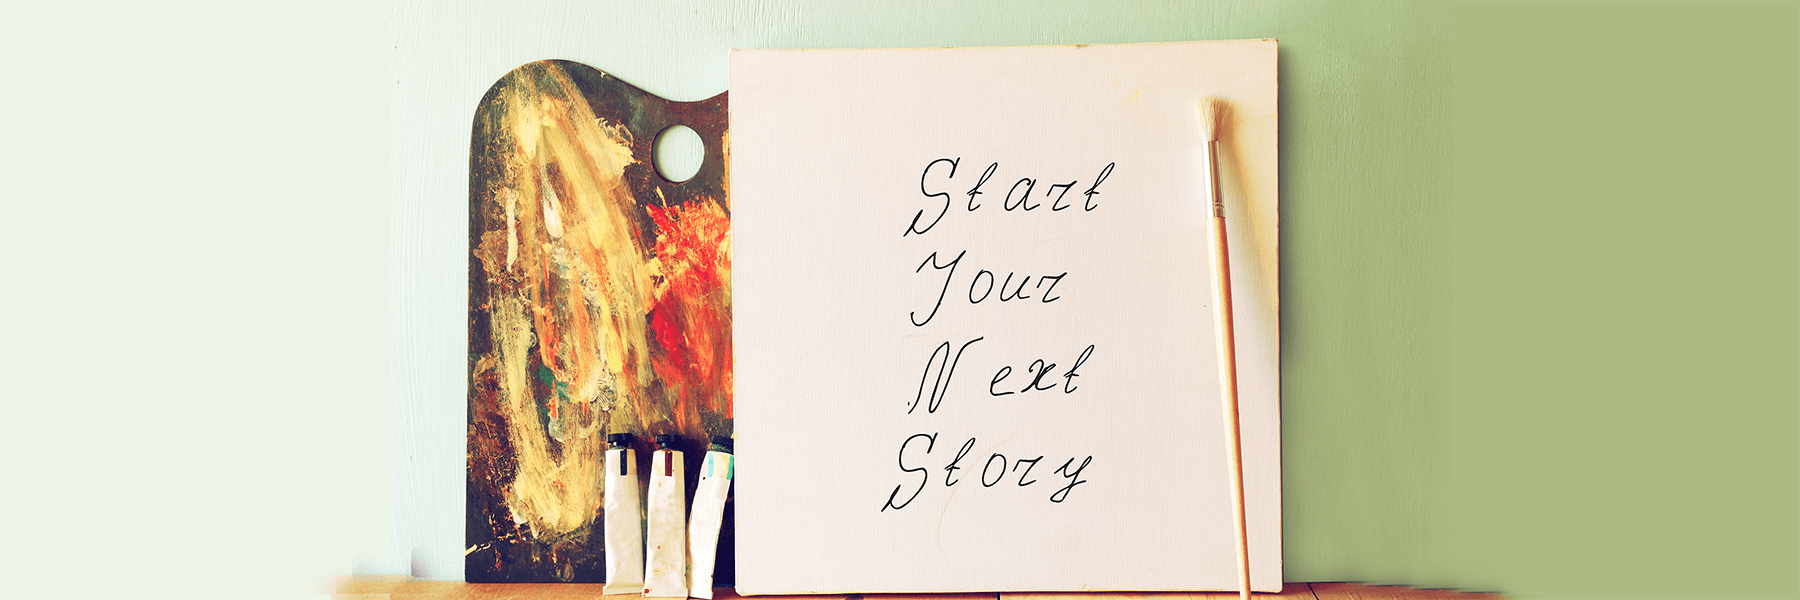 Start
Your
Next
Story